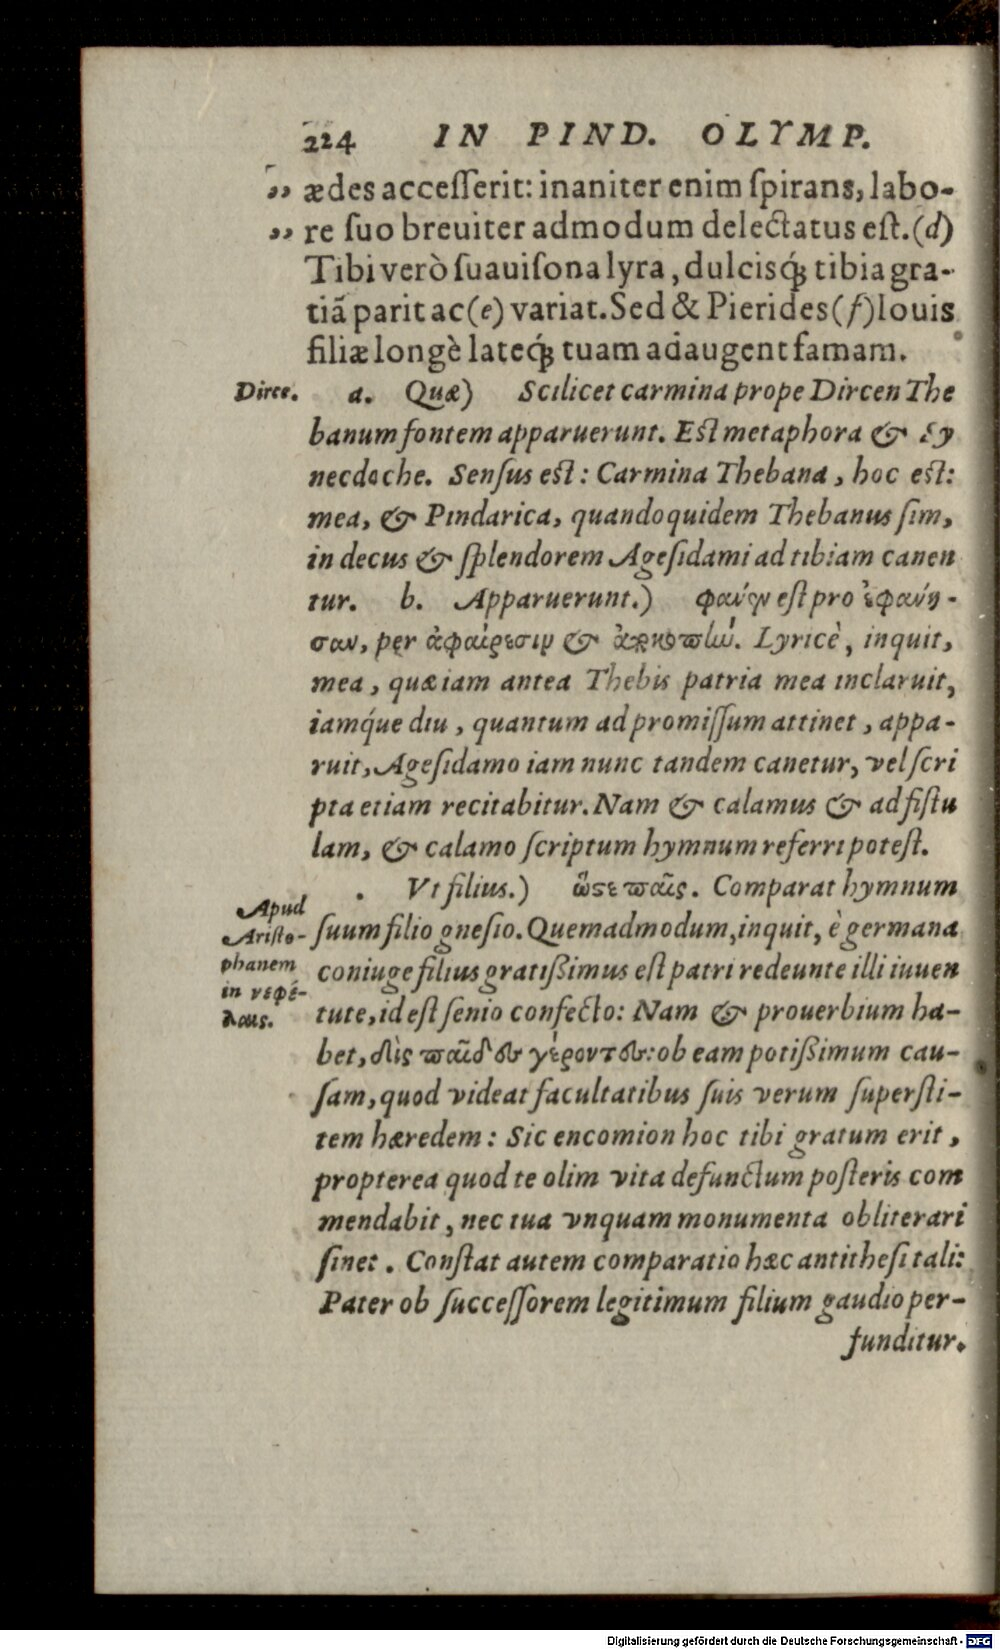 224 IN PIND. OLYMP.
„ ædes accesserit: inaniter enim spirans, labo-
„ re suo breuiter admodum delectatus est. (d)
Tibi verò suauisona lyra, dulcisq́; tibia gra-
tiã parit ac (e) variat. Sed & Pierides (f) Iouis
filiæ longè lateq́; tuam adaugent famam.
Dirce.
a. Quæ) Scilicet carmina prope Dircen The
banum fontem apparuerunt. Est metaphora & Sy
necdoche. Sensus est: Carmina Thebana, hoc est:
mea, & Pindarica, quandoquidem Thebanus sim,
in decus & splendorem Agesidami ad tibiam canen
tur. b. Apparuerunt.) φανὲν est pro ἐφανή-
σαν, per ἀφαίρεσιν & Lyricè, inquit,
mea, quæ iam antea Thebis patria mea inclaruit,
iamq́ue diu, quantum ad promissum attinet, appa-
ruit, Agesidamo iam nunc tandem canetur, vel scri
pta etiam recitabitur. Nam & calamus & ad fistu
lam, & calamo scriptum hymnum referri potest.
. Vt filius.) ὥστε παῖς. Comparat hymnum
suum filio gnesio. Quemadmodum, inquit, è germana
coniuge filius gratissimus est patri redeunte illi iuuen
tute, id est senio confecto: Nam & prouerbium ha-
bet, δὶς παῖδες γέροντες: ob eam potissimum cau-
sam, quod videat facultatibus suis verum supersti-
tem hæredem: Sic encomion hoc tibi gratum erit,
propterea quod te olim vita defunctum posteris com
mendabit, nec tua vnquam monumenta obliterari
sinet. Constat autem comparatio hæc antithesi tali:
Pater ob successorem legitimum filium gaudio per-
funditur.
Apud
Aristo-
phanem
in νεφέ-
λαις.
Digitalisierung gefördert durch die Deutsche Forschungsgemeinschaft - DFG